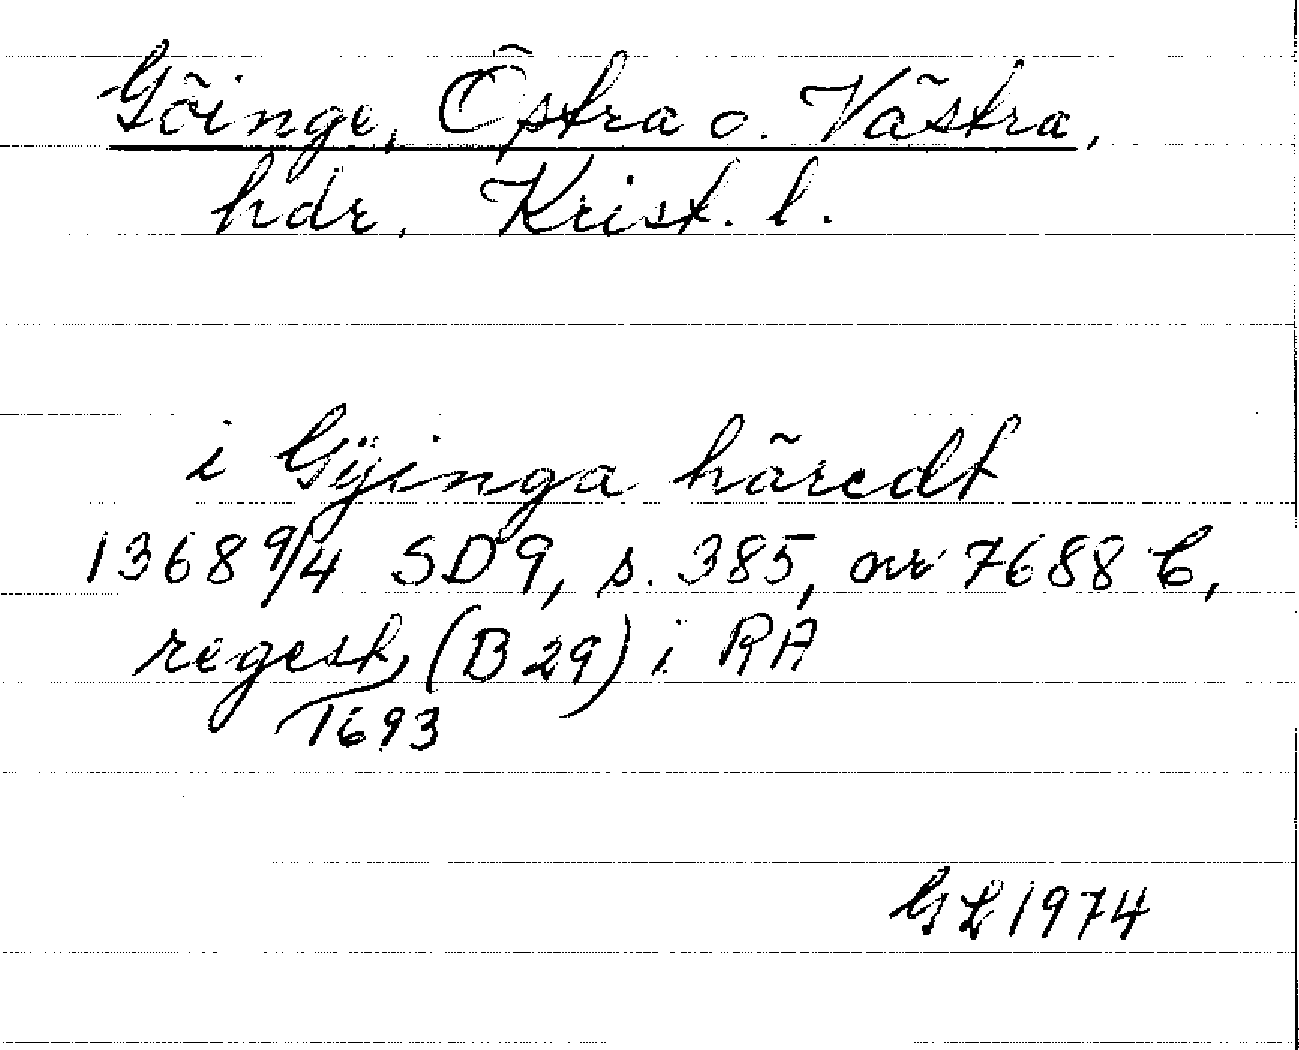 Göinge, Östra o. Västra,
hdr, Krist. l.
i Gÿinga häredt
1368 9/4 SD9, s. 385, nr 7688 C,
regest, (B 29) i RA
1693
GL 1974